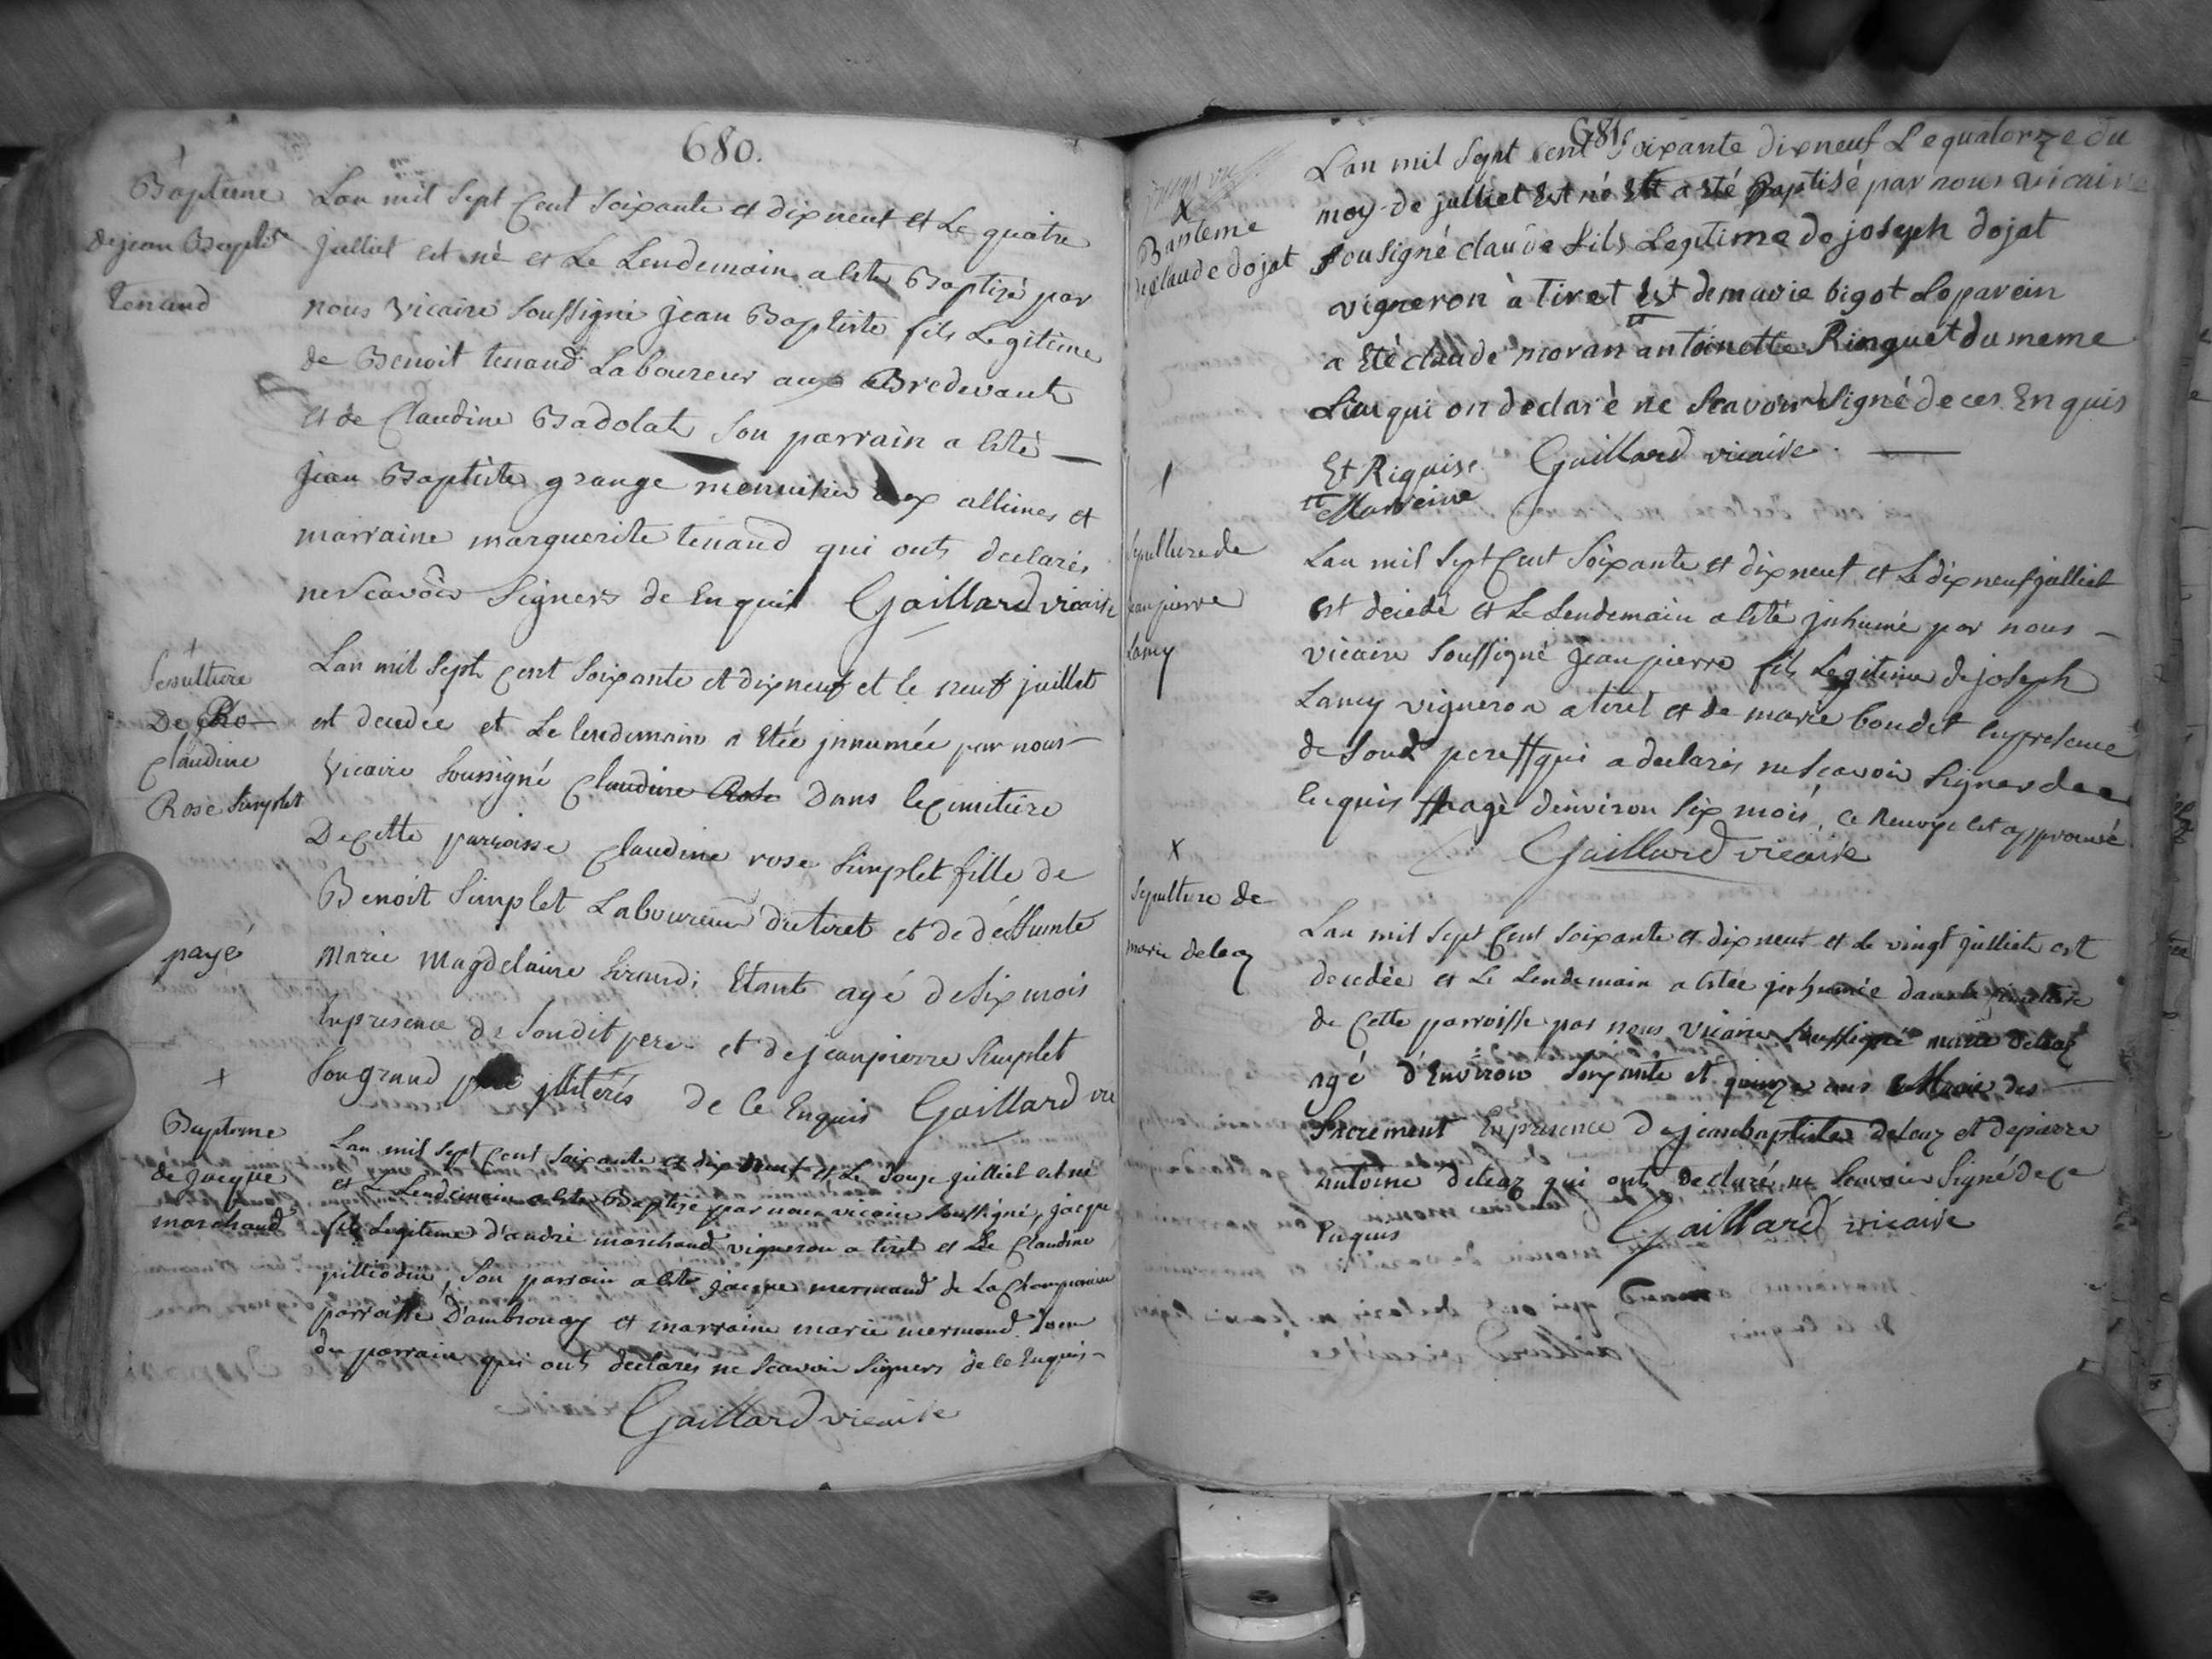 680.
Bapteme
de jean Baptiste
tenand
Lan mil Sept Cent Soixante et dix neuf et Le quatre
Julliet est né et Le Lendemain a été Baptizé par
nous Vicaire Soussigné Jean Baptiste fils Legitime
de Benoit tenand Laboureur aux Bredevants
et de Claudine Badolat Son parrain a été
Jean Baptiste grange menuisier aux allimes et
marraine marguerite tenand qui onts declarés
ne Scavoir Signers de Enquis Gaillard vicaire
Sepulture
De Ro
Claudine
Rose Simplet
payé
Lan mil Sept Cent Soixante et dix neuf et le neuf juillet
est decedée et Le lendemain a Etée jnhumée par nous
Vicaire Soussigné Claudine Rose Dans le cimitiere
De cette parroisse Claudine rose Simplet fille de
Benoit Simplet Laboureur du tiret et de déffunte
Marie Magdelaine Girandi Etant agé de Six mois
En presence de Son dit pere et de jean pierre Simplet
Son grand pere jlliterés de Ce Enquis Gaillard vic
Bapteme
de Jacque
marchand
Lan mil Sept Cent Soixante et dix neuf et Le douze julliet est né
et Le Lendemain a été Baptizé par nous vicaire Soussigné, jacque
fils Legiteme d'andré marchand vigneron a tiret et de Claudine
Son parrain a été jacque mermand de La
parroisse D'ambronay et marraine marie mermand Soeur
du parrain qui onts declarés ne Scavoir Signers de Ce Enquis
Gaillard vicaire
681.
Bapteme
de Claude dojat
Lan mil Sept Cent Soixante dix neuf Le quatorze du
moy de julliet Est né Et a eté Baptisé par nous vicaire
Sousigné claude fils Legitime de joseph dojat
vigneron à Tiret Et de marie bigot Le parein
a Eté claude moran antoinette Ringuet du meme
Lieu qui on declaré ne Scavoir Signé de ces Enquis
Et Riquise Gaillard vicaire
Marreine
Sepulture de
Jean pierre
Lamy
Lan mil Sept Cent Soixante et dix neuf et Le dix neuf julliet
est decedé et Le Lendemain a été jnhumé par nous
vicaire Soussigné Jean pierre fils Legitime de joseph
Lamy vigneron a tiret et de marie boudet En presence
de Sond pere qui a declarés ne Scavoir Signer de ce
Enquis agé d'environ Six mois, Ce Renvoye est approuvé
Gaillard vicaire
Sepulture de
marie deleaz
Lan mil Sept Cent Soixante et dix neuf et Le vingt julliet est
decedée et Le Lendemain a étée jnhumée dans le Cimetiere
de Cette parroisse par nous Vicaire Soussigné marie deleaz
agé d'Environ Soixante et quinze ans Munie des
Sacrement En presence De jean baptiste deleaz et de pierre
antoine deleaz qui ont declaré ne Scavoir Signé de Ce
Enquis Gaillard vicaire